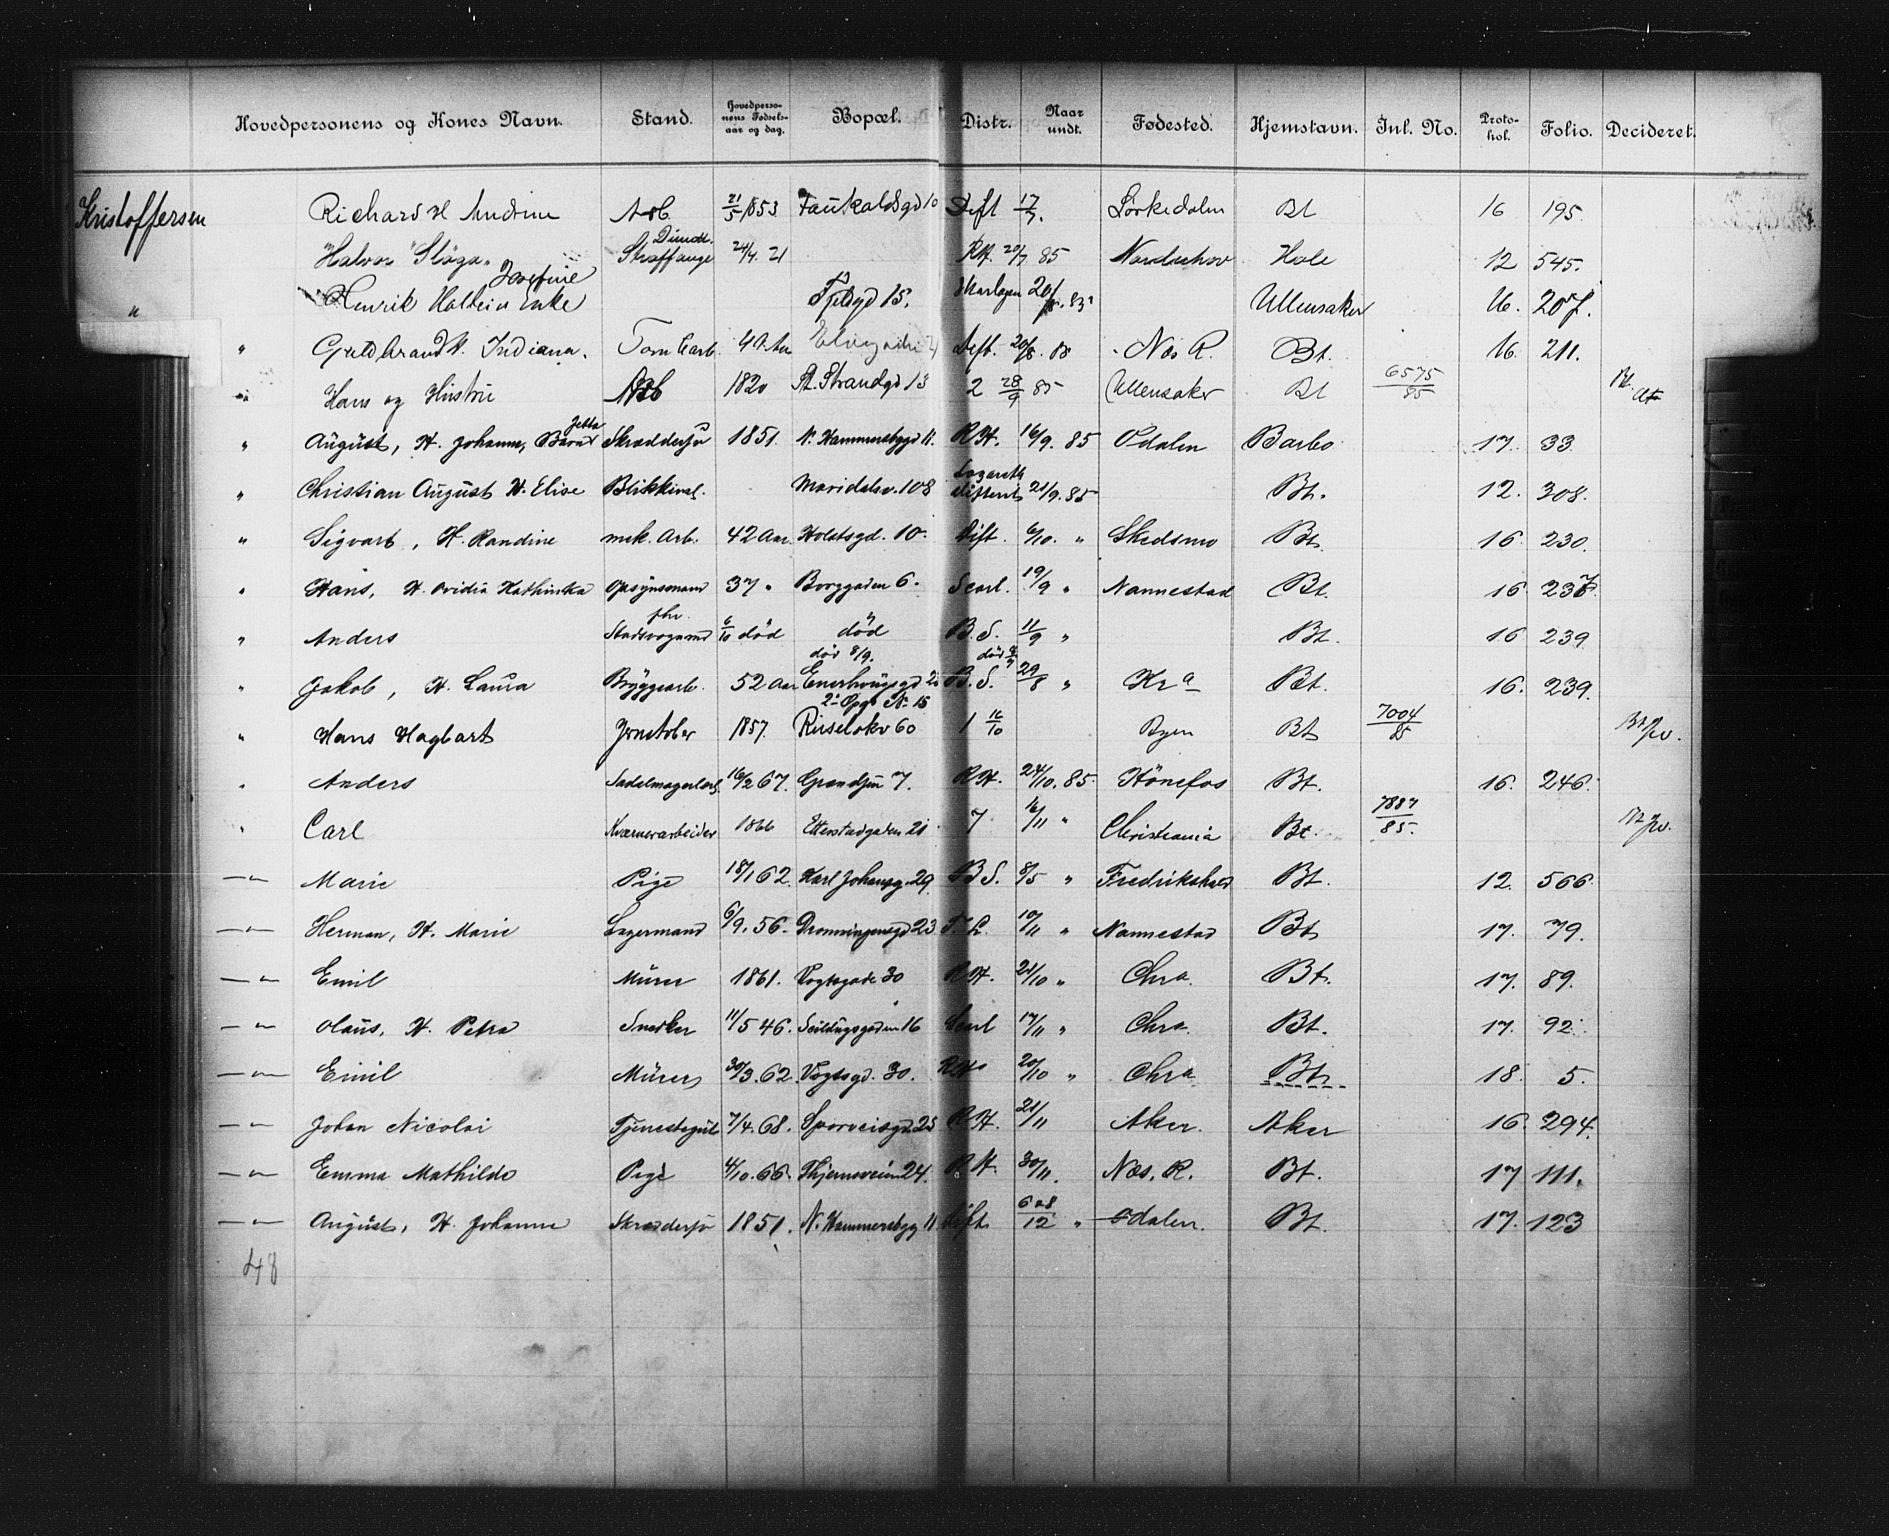 Hovedpersonens og Kones Navn. Stand. Hovedpersonens Fødselsaar og dag. Bopæl. Distr. Naar undt. Fødested. Hjemstavn. Inl. No. Protohol. Folio. Decideret.
Kristoffersen Richard H Andrine Arb. 21/5 1853 10 Dift 17/7. Sørkedalen Bt 16 195.
"Halvor" Sløga Straffange 24/4. 21 RH. 20/7 85 Norderhov Hole 12 545.
" Henrik Holtein Enke Josefine 15. 20/ 85 Ullensaker 16. 207.
" Guldbrand H. Indiana. Tom arb. 40 Aar Dift. 20/8. Næs R. Bt. 16. 211.
" Hans og Hustru Arb 1820 St. Strandgd 13 2 28/9 85 Ullensaker Bt 6575/85 Bt.
" August, H. Johanne, Barn Jetta Skræddersv 1851. N. Hammersbggd 11. RH. 16/9. 85 Odalen Barbo 17. 33.
" Christian August H. Elise Blikkensl. Maridalsv. 108 Lazareth difterit 21/9. 85 Bt. 12. 308.
" Sigvart, H. Randine mek. Arb. 42 Aar Holstsgd. 10. Dift. 6/10. " Skedsmo Bt. 16. 230.
" Hans, H. Ovidia Kathinka Opsynsmand 37 " Borggaden 6. Scarl. 19/9 " Nannestad Bt. 16 237.
" Anders fhv. Stadsvognmd 6/10 død død B. S. 11/9 " Bt. 16. 239.
" Jakob, H. Laura Bryggearb. 52 Aar død 8/9. Enerhougsgd 20 2. Opg. No 15 B. S. 29/8 " Kra Bt. 16. 239.
" Hans Hagbart Jernstøber 1857. Ruseløkv 60 1 16/10 Byen Bt 7004/85
" Anders Sadelmagerlærl. 16/2 67. Grændsen 7. RH. 24/10. 85. Hønefos Bt. 16. 246.
" Carl Kværnerarbeider 1866 Etterstadgaden 21 7 16/11 " Christiania Bt. 7887/85.
— " — Marie Pige 18/1 62. Karl Johansg. 29. B S. 8/5 " Fredrikshald Bt. 12. 566.
— " — Herman, H. Marie Lagermand 6/9. 56. Dronningensgd 23 10/11 " Nannestad Bt. 17. 79.
— " — Emil Murer 1861. Vogtsgade 30 RH. 21/10 " Chra. Bt. 17. 89.
— " — Olaus, H. Petra Snedker 11/5 46. Seildugsgaden 16 Scarl 17/11 " Chra. Bt. 17. 92.
— " — Emil Murer 30/3. 62. Vogtsgd. 30. RH. 20/10 " Chra. Bt. 18. 5.
— " — Johan Nicolai Tjenestegut 7/4. 68. Sporveisgd. 25 RH. 21/11 Aker. Aker 16. 294.
— " — Emma Mathilde Pige 4/10. 66. Thjernsveien 24. RH. 30/11. Næs. R. Bt. 17 111.
— " — August, H. Johanne Skræddersv 1851. N. Hammersbgg 11 Dift. 12 " Odalen. Bt. 17. 123
48